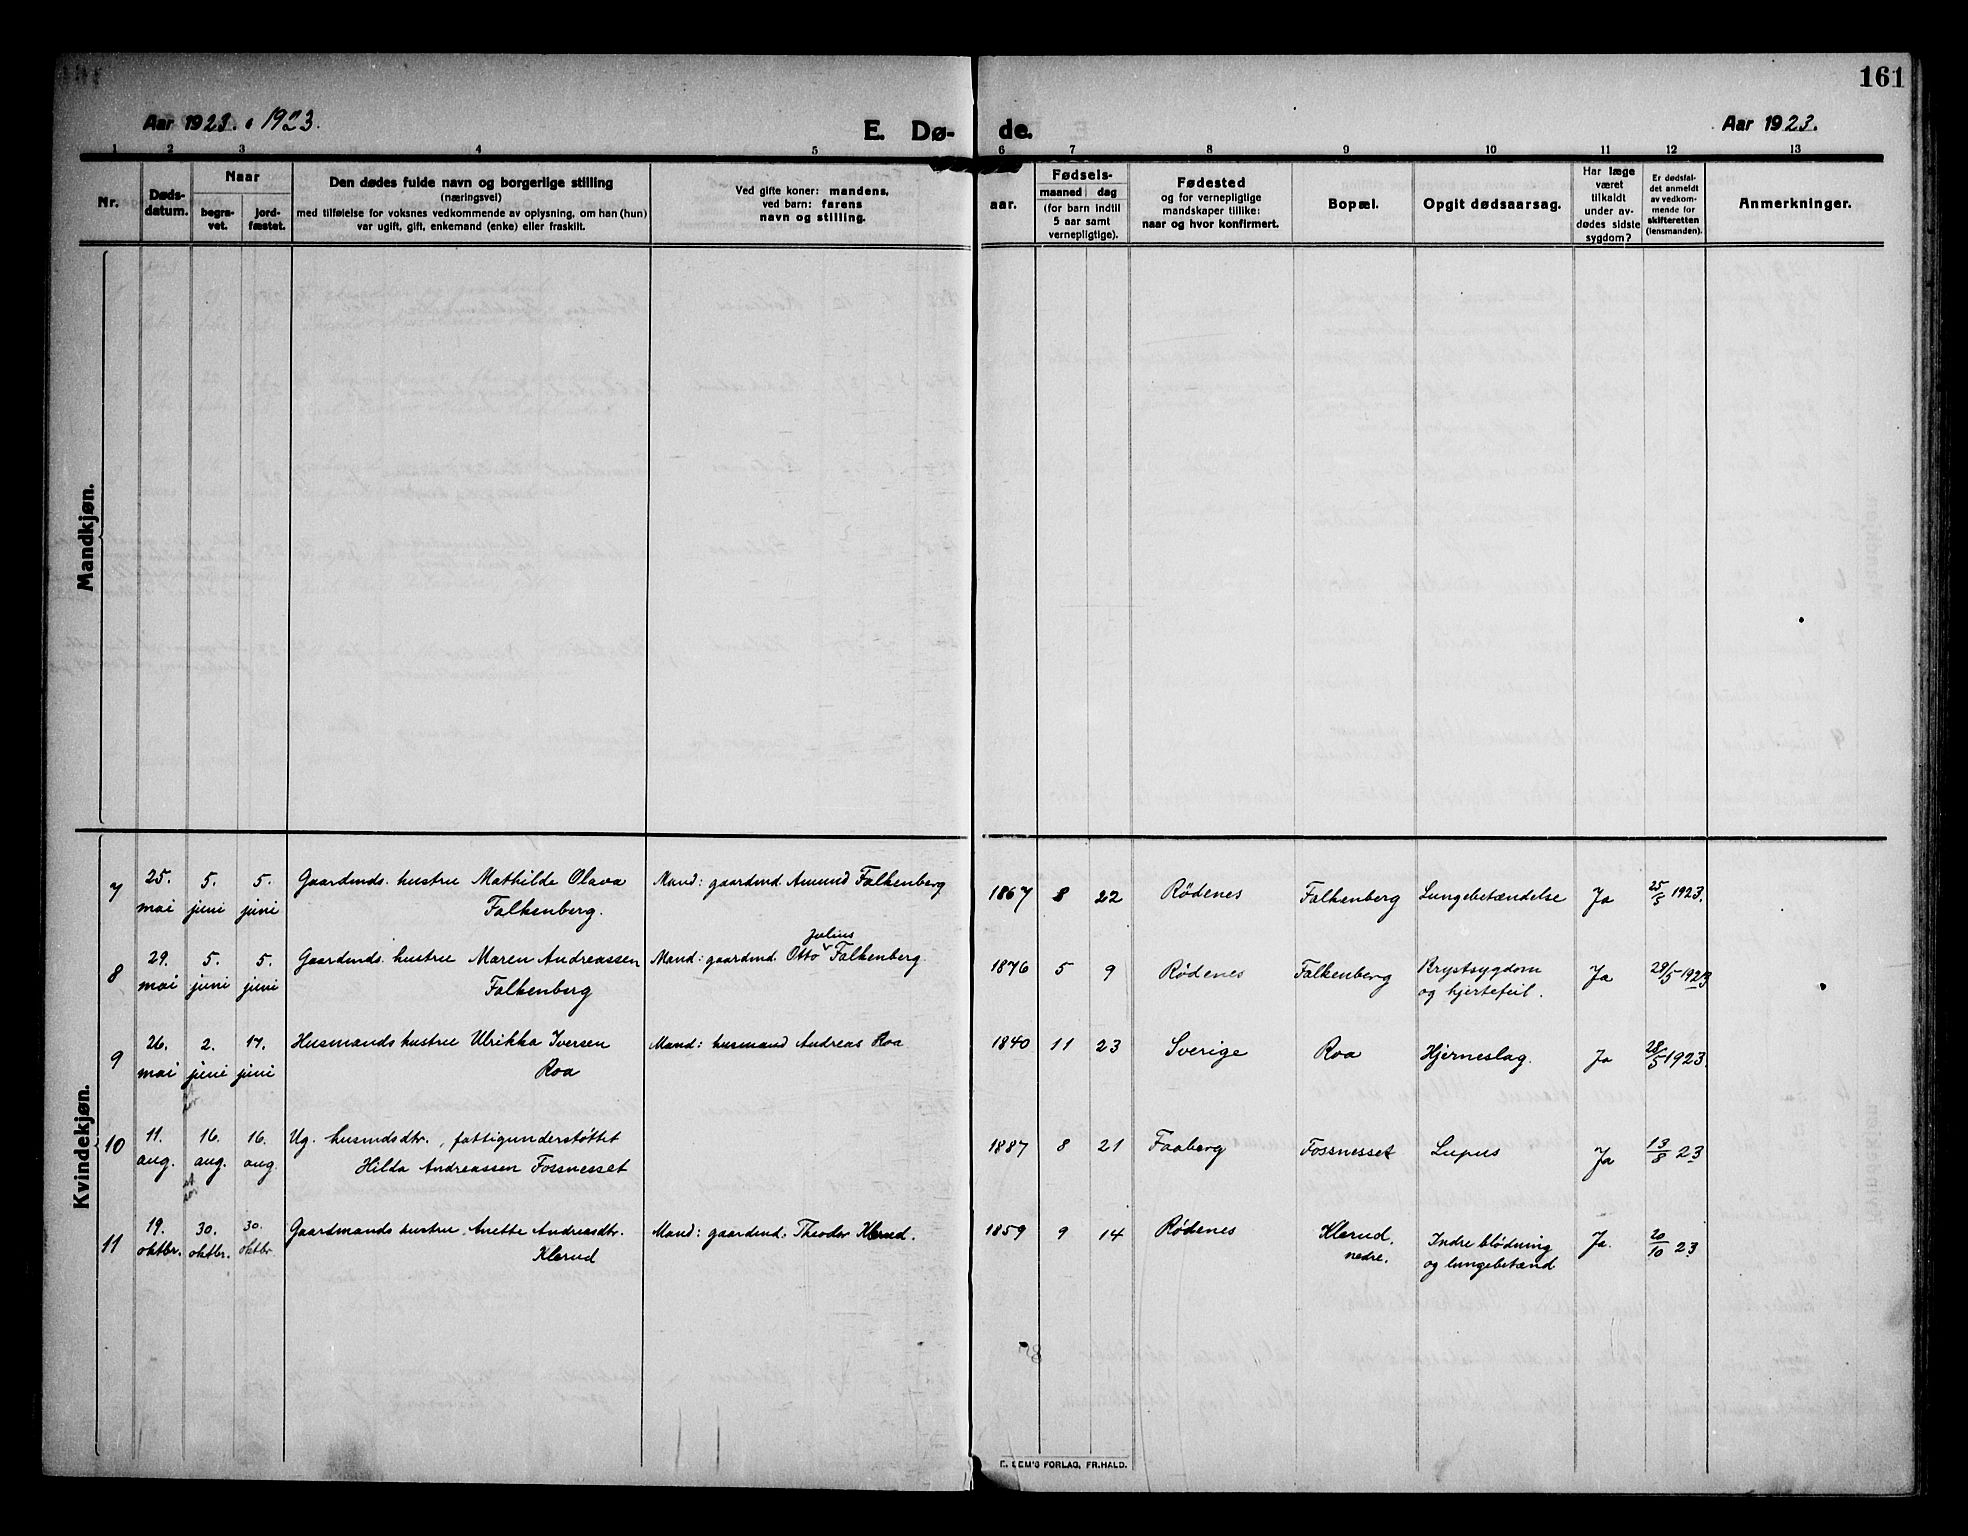 161
Aar 1923. 1923.
E. Dø-
de.
Aar 1923.
1 2 3 4 5 6 7 8 9 10 11 12 13
Nr.
Døds-
datum.
Naar
begra-
vet.
jord-
fæstet.
Den dødes fulde navn og borgerlige stilling
(næringsvei)
med tilføielse for voksnes vedkommende av oplysning, om han (hun)
var ugift, gift, enkemand (enke) eller fraskilt.
Ved gifte koner: mandens,
ved barn: farens
navn og stilling.
Fødsels-
aar.
maaned dag
(for barn indtil
5 aar samt
vernepligtige).
Fødested
og for vernepligtige
mandskaper tillike:
naar og hvor konfirmert.
Bopæl.
Opgit dødsaarsag.
Har læge
været
tilkaldt
under av-
dødes sidste
sygdom?
Er dødsfal-
det anmeldt
av vedkom-
mende for
skifteretten
(lensmanden).
Anmerkninger.
Mandkjøn.
Kvindekjøn.
7 25. mai 5. juni 5. juni Gaardmds. hustru Mathilde Olava
Falkenberg.
Mand: gaardmd. Amund Falkenberg 1867 8 22 Rødenes Falkenberg Lungebetændelse Ja 25/5 1923.
8 29. mai 5. juni 5. juni Gaardmds. hustru Maren Andreassen
Falkenberg
Mand: gaardmd. Otto Julius Falkenberg. 1876 5 9 Rødenes Falkenberg Brystsygdom
og hjertefeil. Ja 29/5 1923
9 26. mai 2. juni 17. juni Husmands hustru Ulrikka Iversen
Roa
Mand: husmand Andreas Roa 1840 11 23 Sverige Roa Hjerneslag. Ja 28/5 1923.
10 11. aug. 16. aug. 16. aug. Ug. husmdsdtr., fattigunderstøttet
Hilda Andreassen Fossnesset
1887 8 21 Faaberg Fossnesset Lupus Ja 13/8 23
11 19. oktbr. 30. oktbr. 30. oktbr. Gaardmands hustru Anette Andreasdtr.
Klerud
Mand: gaardmd. Theodor Klerud. 1859 9 14 Rødenes Klerud,
nedre. Indre blødning
og lungebetænd Ja. 20/10 23
E. SEM'S FORLAG, FR.HALD.